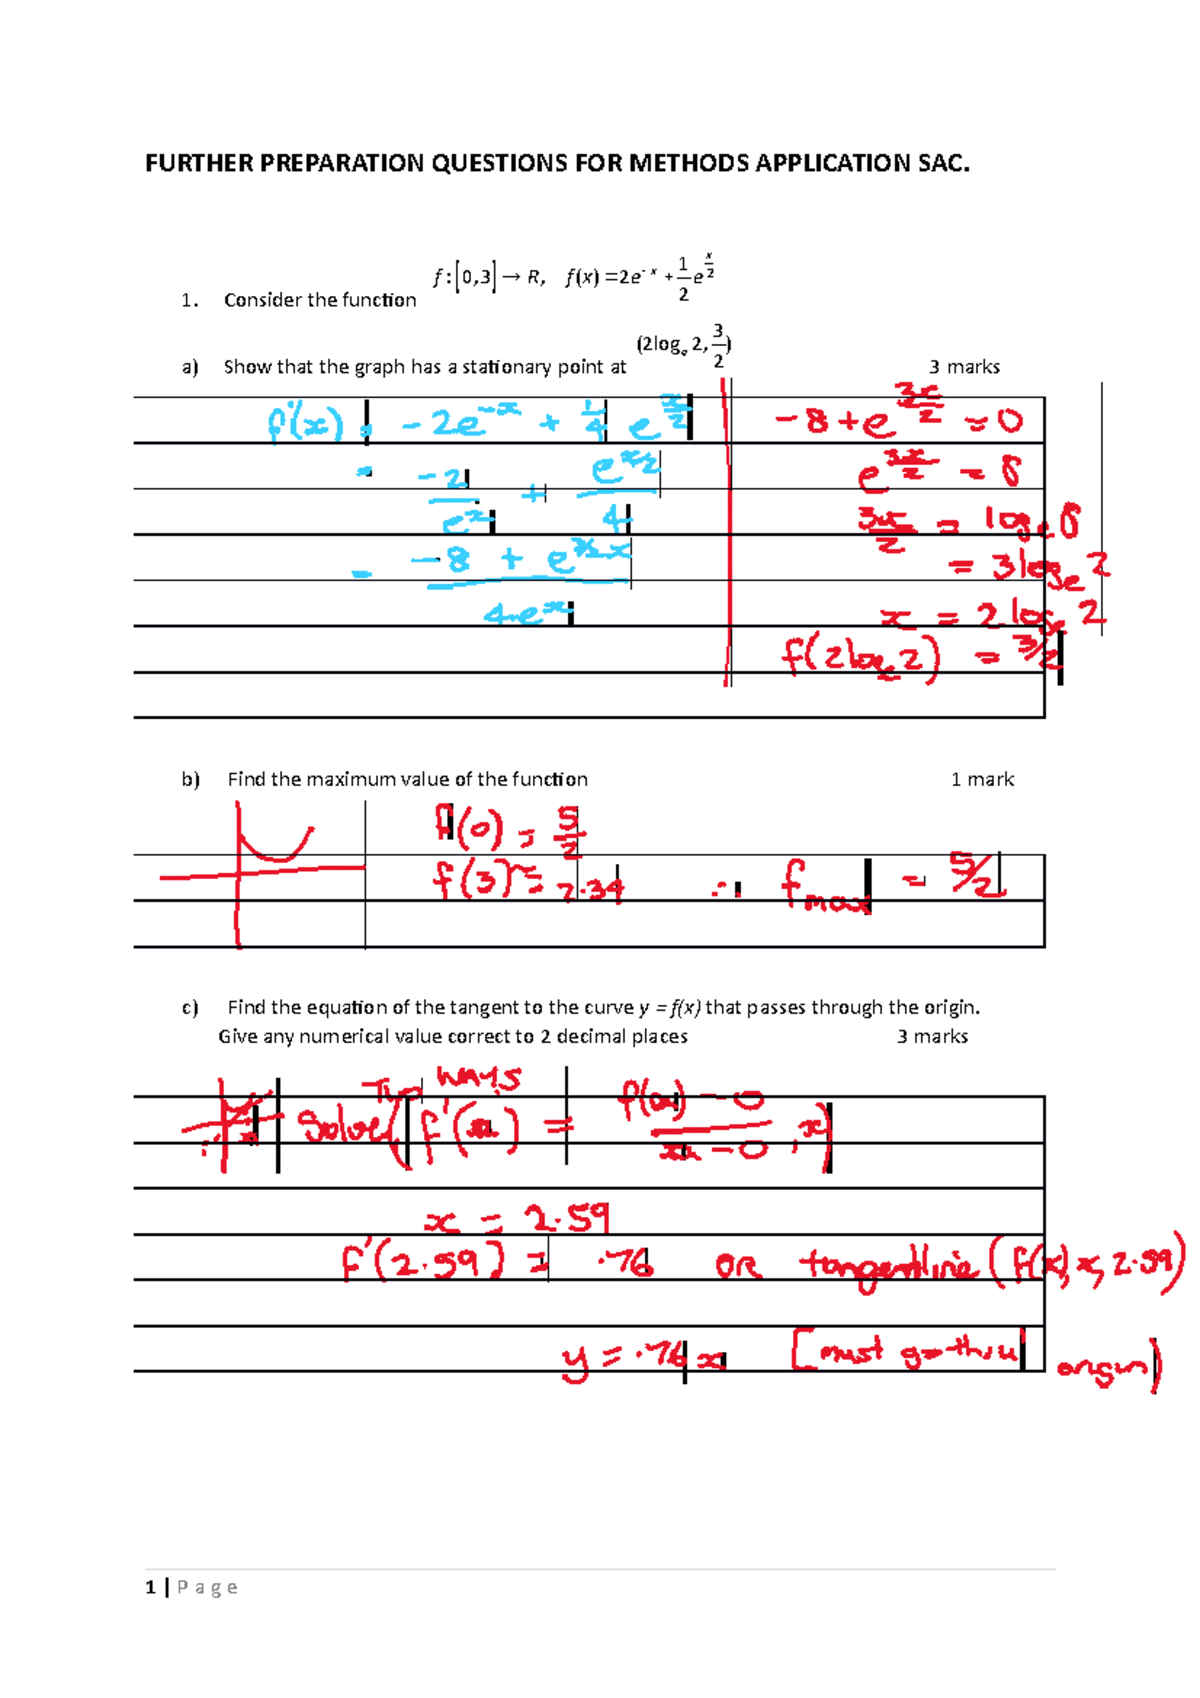 FURTHER PREPARATION QUESTIONS FOR METHODS APPLICATION SAC.
1. Consider the function f:[0,3] → R, f(x) = 2e^{-x} + \frac{1}{2}e^{\frac{x}{2}}
a) Show that the graph has a stationary point at (2log_e 2, \frac{3}{2}) 3 marks
f'(x) = -2e^{-x} + \frac{1}{4} e^{\frac{x}{2}}
= \frac{-2}{e^x} + \frac{e^{x/2}}{4}
= \frac{-8 + e^{\frac{3x}{2}}}{4e^x}
-8 + e^{\frac{3x}{2}} = 0
e^{\frac{3x}{2}} = 8
\frac{3x}{2} = log_e 8
= 3log_e 2
x = 2log_e 2
f(2log_e 2) = 3/2
b) Find the maximum value of the function 1 mark
f(0) = \frac{5}{2}
f(3) ≈ 2.34 ∴ f_{max} = 5/2
c) Find the equation of the tangent to the curve y = f(x) that passes through the origin.
Give any numerical value correct to 2 decimal places 3 marks
Two WAYS
Solve(f'(x) = \frac{f(x) - 0}{x - 0}, x)
x = 2.59
f'(2.59) = .76 OR tangentline(f(x), x, 2.59)
y = .76x [must go thru origin)
1 | Page